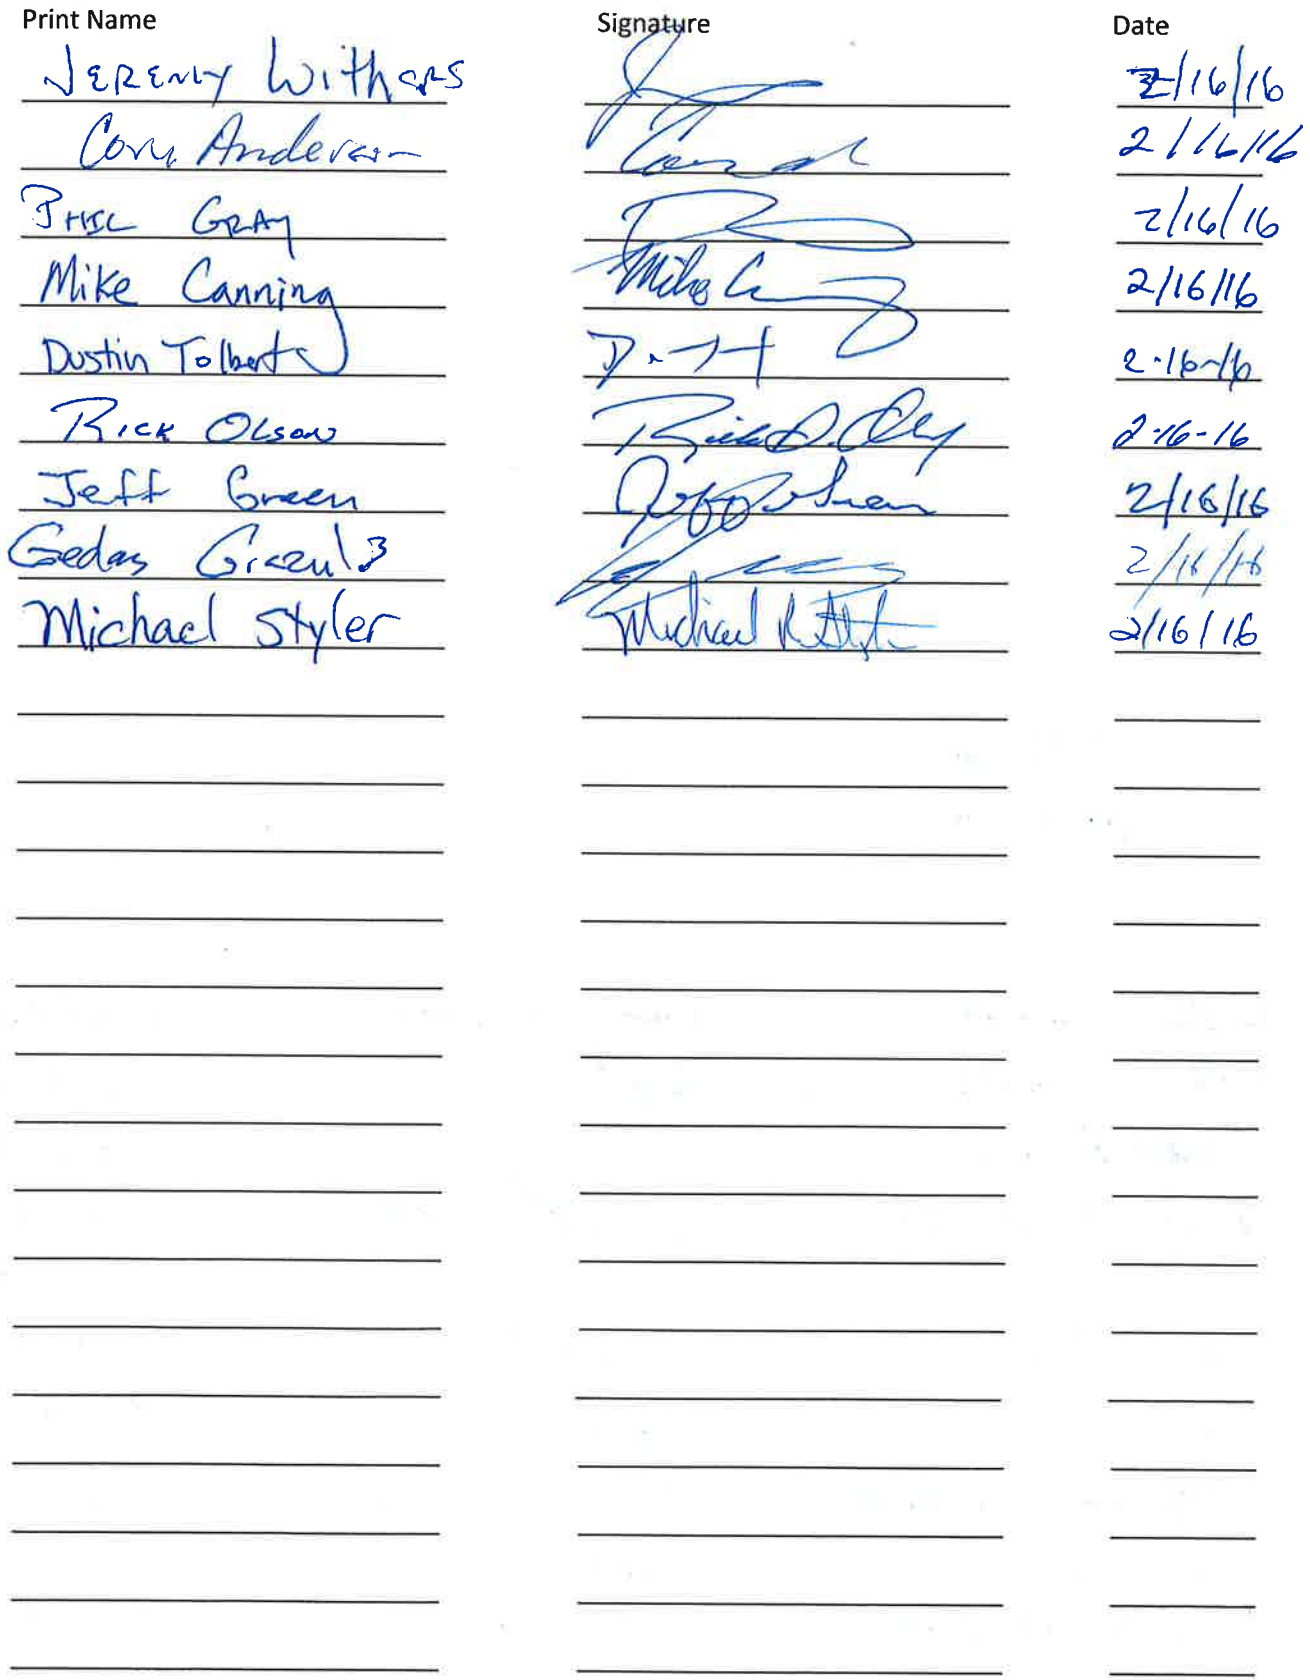 Print Name Signature Date
JEREMY Withers 2/16/16
Cory Anderson 2/16/16
PHIL GRAY 2/16/16
Mike Canning Mike C 2/16/16
Dustin Tolbert 2-16-16
RICK OLSON Rick D. Olsy 2-16-16
Jeff Green Jeff Green 2/16/16
Gedas 2/16/16
Michael Styler Michael R Styler 2/16/16